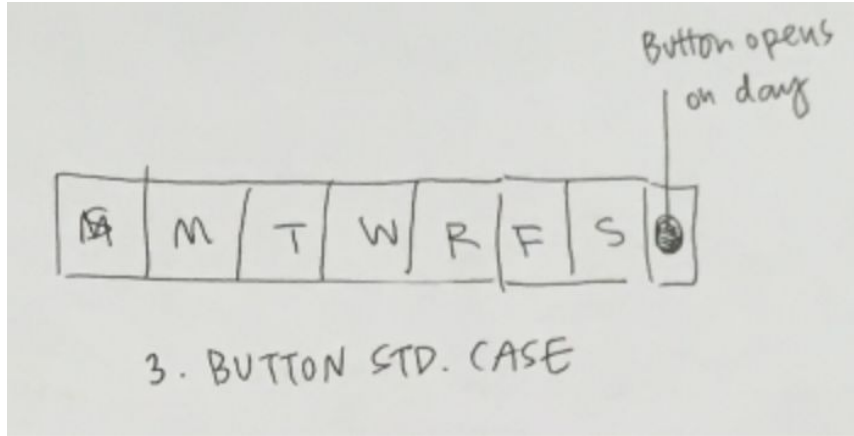 Button opens
on day
M T W R F S
3. BUTTON STD. CASE